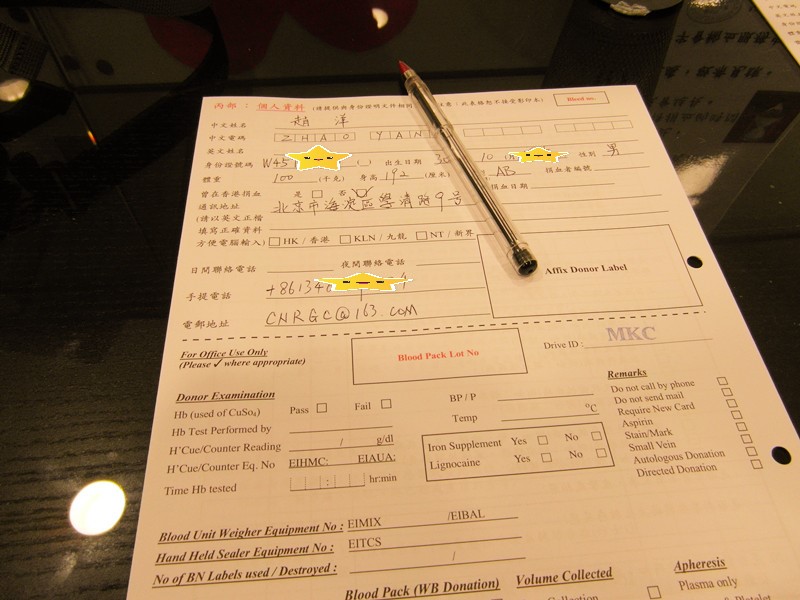 丙部： 個人資料 (請提供與身份證明文件相同 Blood no.
中文姓名 趙 洋
中文電碼 ZHAO YAN
英文姓名
身份證號碼 W45 ( ) 出生日期 30 10 性別 男
體重 100 (千克) 身高 192 (厘米) AB 捐血者編號
曾在香港捐血 是 □ 否 捐血日期
通訊地址 北京市海淀區學清路9号
(請以英文正楷
填寫正確資料
方便電腦輸入) □ HK / 香港 □ KLN / 九龍 □ NT / 新界
日間聯絡電話 夜間聯絡電話
手提電話 +86134
電郵地址 CNRGC@163.COM
Affix Donor Label
For Office Use Only
(Please ✓ where appropriate)
Blood Pack Lot No
Drive ID : MKC
Donor Examination
Hb (used of CuSo₄) Pass □ Fail □
Hb Test Performed by
H'Cue/Counter Reading / g/dl
H'Cue/Counter Eq. No EIHMC: EIAUA:
Time Hb tested : hr:min
BP / P
Temp °C
Iron Supplement Yes □ No □
Lignocaine Yes □ No □
Remarks
Do not call by phone □
Do not send mail □
Require New Card □
Aspirin □
Stain/Mark □
Small Vein □
Autologous Donation □
Directed Donation □
Blood Unit Weigher Equipment No : EIMIX /EIBAL
Hand Held Sealer Equipment No : EITCS
No of BN Labels used / Destroyed : /
Blood Pack (WB Donation)
Volume Collected
Apheresis
Plasma only
Platelet